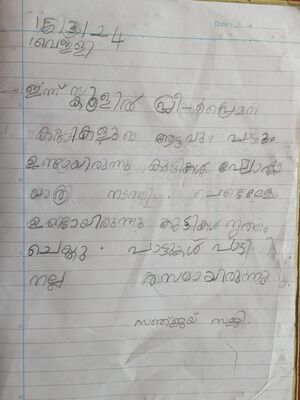 15/3/24
വെള്ളി
Date:
ഇന്ന് സ്കൂളിൽ പ്രീ-പ്രൈമറി
കുട്ടികളുടെ ആട്ടവും പാട്ടും
ഉണ്ടായിരുന്നു കുട്ടികൾ
നടത്തി ചെണ്ടമേളം
ഉണ്ടായിരുന്നു കുട്ടികൾ നൃത്തം
ചെയ്തു . പാട്ടുകൾ പാടി
നല്ല രസമായിരുന്നു
സഞ്ജയ് സജി